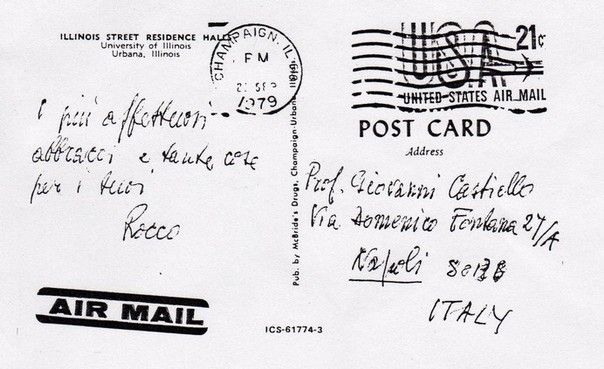 ILLINOIS STREET RESIDENCE HALL
University of Illinois
Urbana, Illinois
CHAMPAIGN, IL
PM
SEP
1979
USA 21¢
UNITED STATES AIR MAIL
POST CARD
Address
I più affettuosi
abbracci e tante cose
per i tuoi
Rocco
Pub. by McBride's Drugs, Champaign-Urbana, Illinois
Prof. Giovanni Castiello
Via Domenico Fontana 27/A
Napoli
ITALY
AIR MAIL
ICS-61774-3